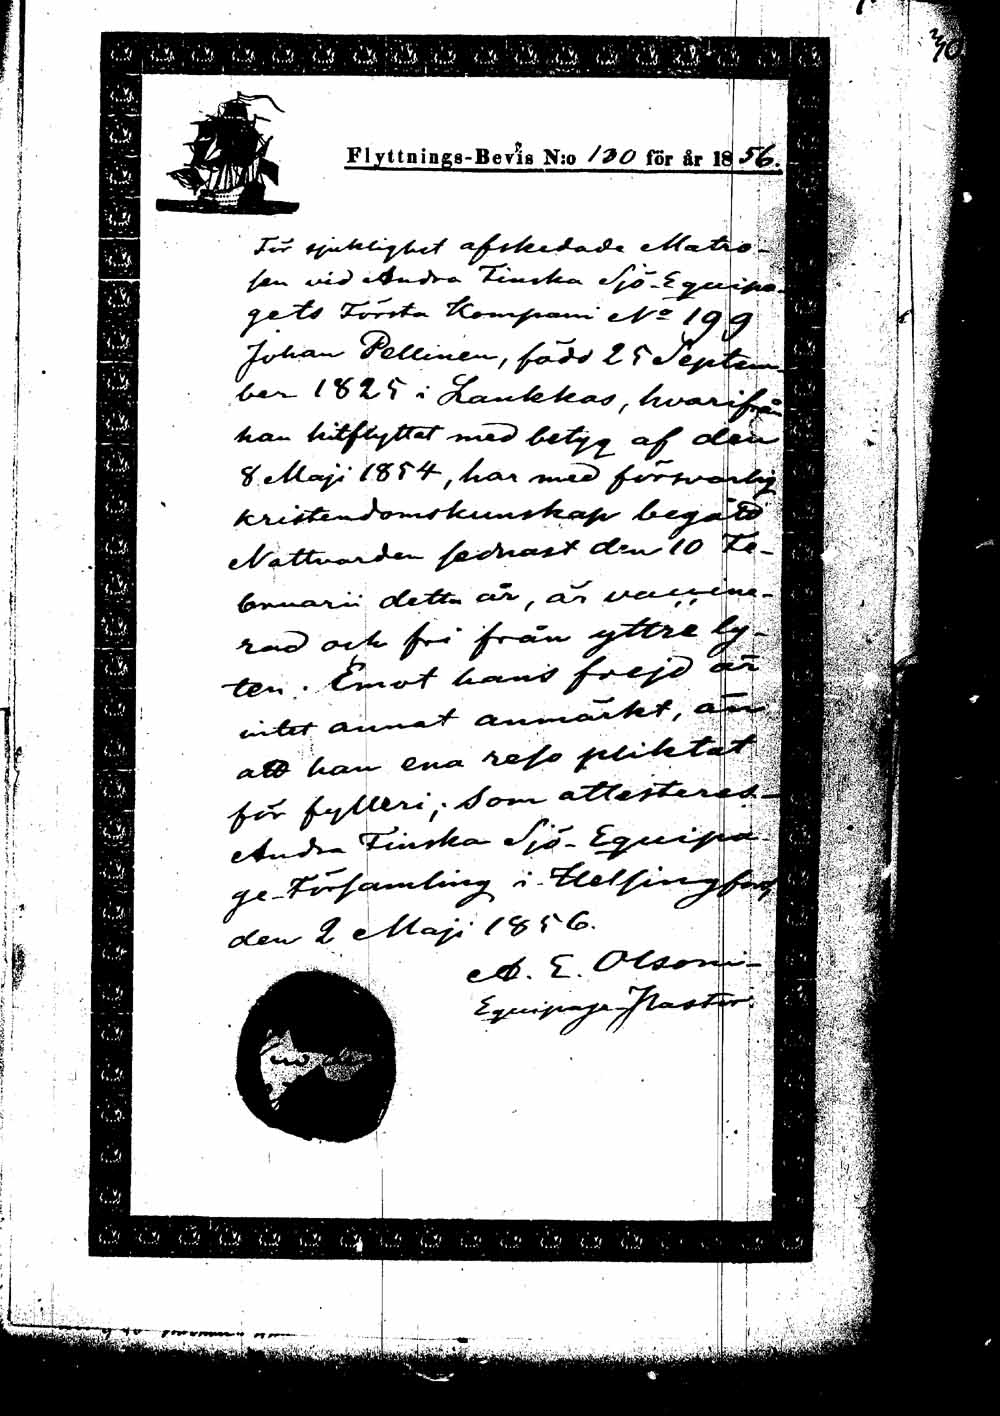 Flyttnings-Bevis N:o 130 för år 1856.
För sjuklighet afskedade Matro-
sen vid Andra Finska Sjö-Equipa-
gets Första Kompani No 199
Johan Pellinen, född 25 Septem-
ber 1825 i Laukkas, hvarifrån
han hitflyttat med betyg af den
8 Maji 1854, har med försvarlig
kristendomskunskap begått
Nattvarden sednast den 10 Fe-
bruarii detta år, är vaccine-
rad och fri från yttre ly-
ten. Emot hans frejd är
intet annat anmärkt, än
att han ena reso pliktat
för fylleri; Som attesteras.-
Andra Finska Sjö-Equipa-
ge-Församling i Helsingfors
den 2 Maji 1856.
A. E. Olsoni-
Equipage-Pastor.